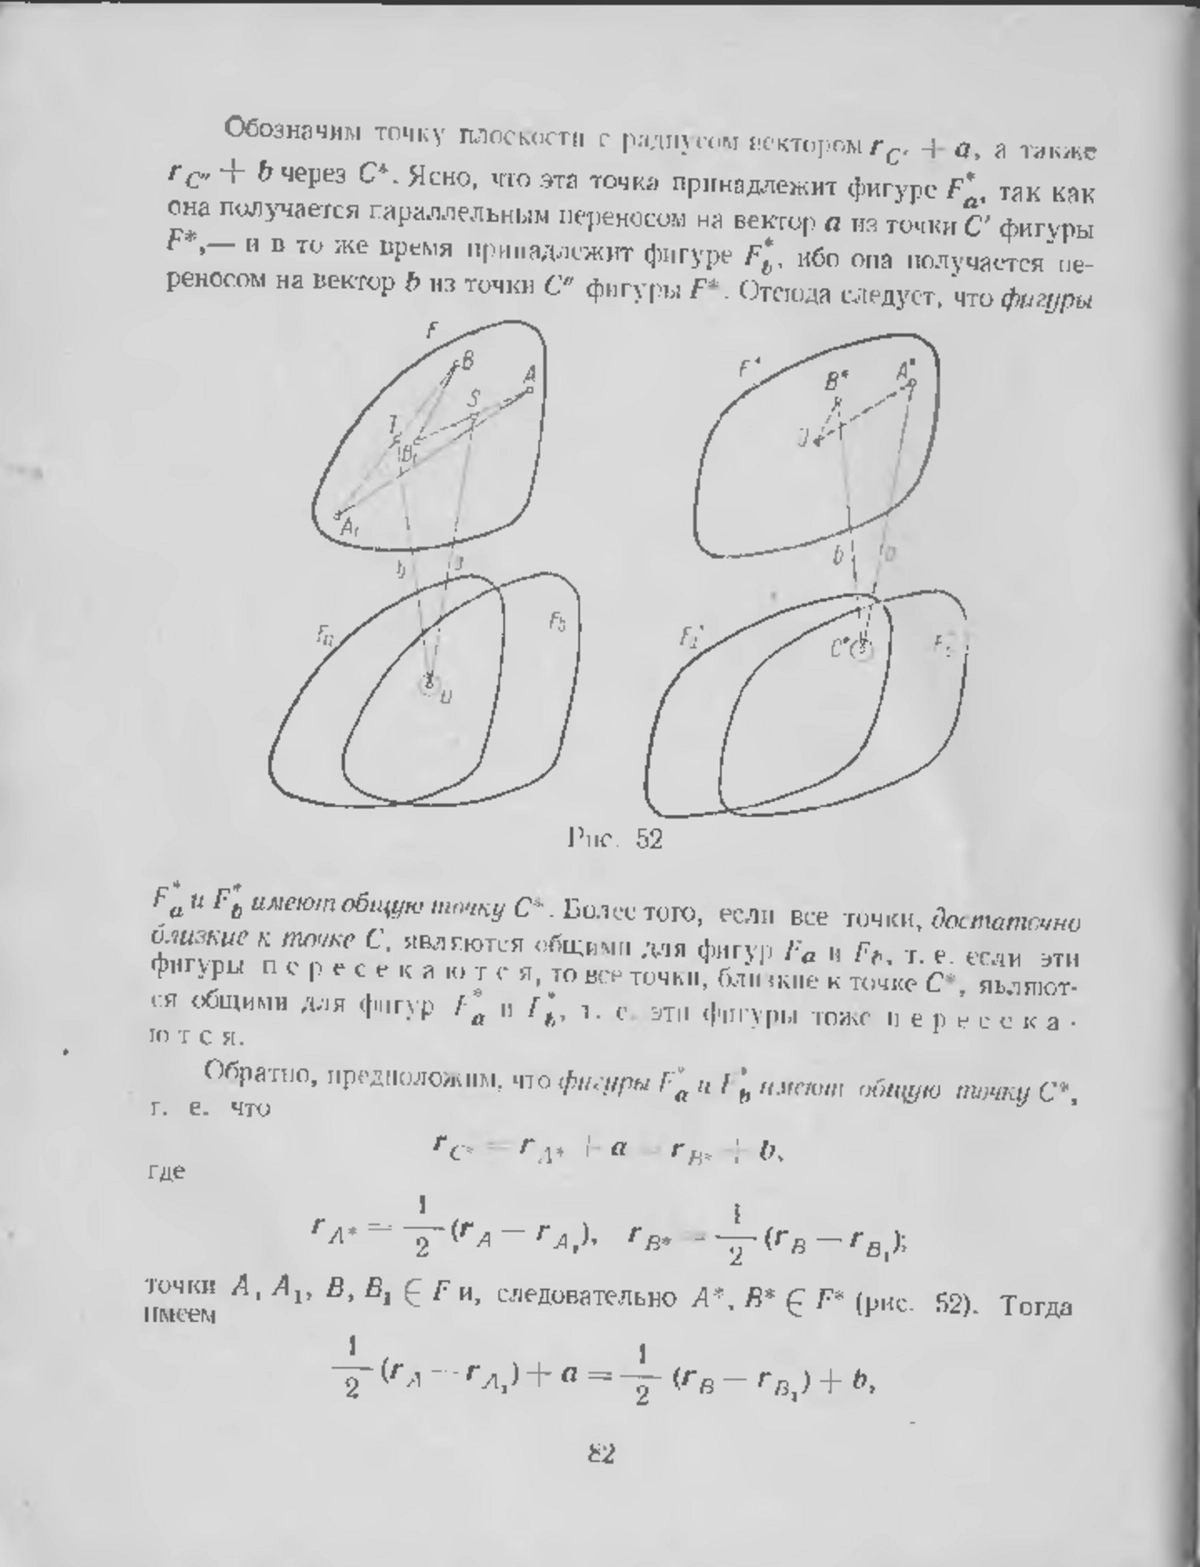 Обозначим точку плоскости с радиусом вектором r_{C'} + a, а также
r_{C''} + b через C*. Ясно, что эта точка принадлежит фигуре F*_a, так как
она получается параллельным переносом на вектор a из точки C' фигуры
F*,— и в то же время принадлежит фигуре F*_b, ибо она получается пе-
реносом на вектор b из точки C'' фигуры F*. Отсюда следует, что фигуры
F
B
A
S
T
B₁
A₁
b
a
F_a
F_b
F*
B*
A*
O
b
a
C*
Рис. 52
F*_a и F*_b имеют общую точку C*. Более того, если все точки, достаточно
близкие к точке C, являются общими для фигур F_a и F_b, т. е. если эти
фигуры пересекаются, то все точки, близкие к точке C*, являют-
ся общими для фигур F*_a и F*_b, т. е. эти фигуры тоже пересека-
ются.
Обратно, предположим, что фигуры F*_a и F*_b имеют общую точку C*,
т. е. что
r_{C*} = r_{A*} + a = r_{B*} + b,
где
r_{A*} = 1/2 (r_A — r_{A₁}), r_{B*} = 1/2 (r_B — r_{B₁});
точки A, A₁, B, B₁ ∈ F и, следовательно A*, B* ∈ F* (рис. 52). Тогда
имеем
1/2 (r_A — r_{A₁}) + a = 1/2 (r_B — r_{B₁}) + b,
82